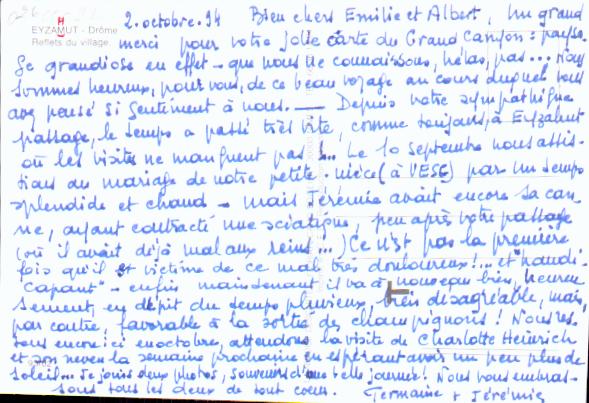 EYZAHUT - Drôme
Reflets du village.
2. octobre. 94 Bien chers Emilie et Albert, Un grand
merci pour votre jolie carte du Grand Canyon : paysa-
ge grandiose en effet - que nous ne connaissons, hélas, pas... Nous
sommes heureux, pour vous, de ce beau voyage au cours duquel vous
avez pensé si gentiment à nous. — Depuis votre sympathique
passage, le temps a passé très vite, comme toujours, à Eyzahut
où les visites ne manquent pas !... Le 10 septembre nous assis-
tions au mariage de notre petite-nièce (à VESC) par un temps
splendide et chaud - mais Jérémie avait encore sa can-
ne, ayant contracté une sciatique, peu après votre passage
(où il avait déjà mal aux reins...) Ce n'est pas la première
fois qu'il est victime de ce mal très douloureux !... et "handi-
capant" - enfin maintenant il va à nouveau bien, heureu-
sement, en dépit du temps pluvieux, bien désagréable, mais,
par contre, favorable à la sortie des champignons ! Nous res-
tons encore ici en octobre, attendons la visite de Charlotte Heinrich
et son neveu la semaine prochaine en espérant avoir un peu plus de
soleil... Je joins deux photos, souvenirs d'une belle journée ! Nous vous embras-
sons tous les deux de tout coeur. Germaine + Jérémie